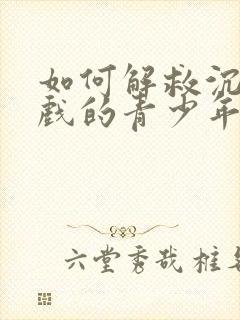 如何解救沉
戲的青少年
六堂秀哉